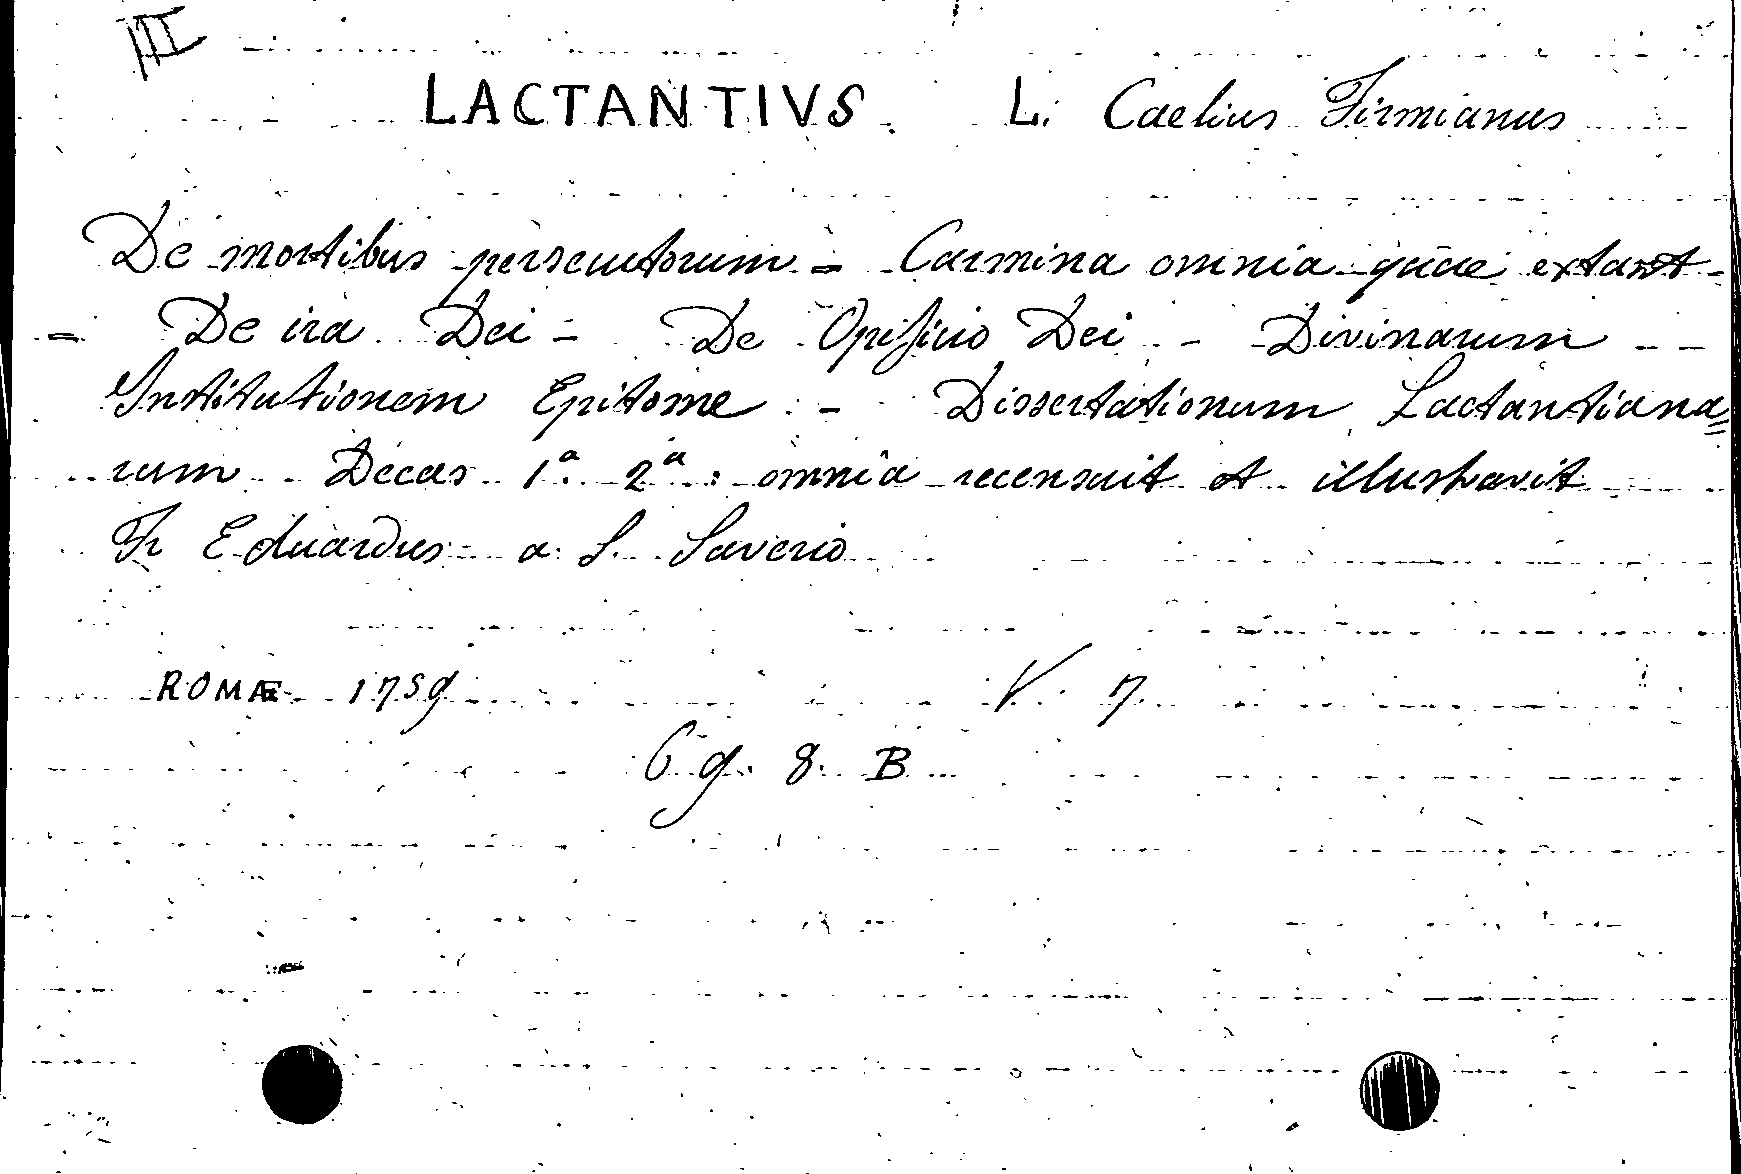 III
LACTANTIVS. L. Caelius Firmianus
De mortibus persecutorum - Carmina omnia quae extant -
- De ira Dei - De Opificio Dei - Divinarum
Institutionem Epitome - Dissertationum Lactantiana=
rum Decas 1ª 2ª: omnia recensuit et illustravit
Fr Eduardus a S. Saverio
ROMÆ 1759 V. 7.
6 g. 8. B